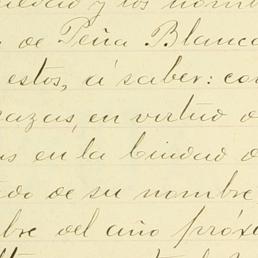 y los nomb
de Peña Blanca
estos, á saber: con
en virtud d
en la Ciudad d
de su nombre
bre del año próx